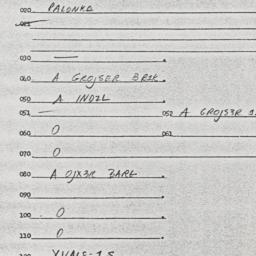 020. PALONKA
021.
030. —
040. A GROJSER BRIK
050. A INDZL
051. — 052 A GROJS3R
060. O 061.
070. O
080. A OJX3R BARG
090.
100. O
110. O